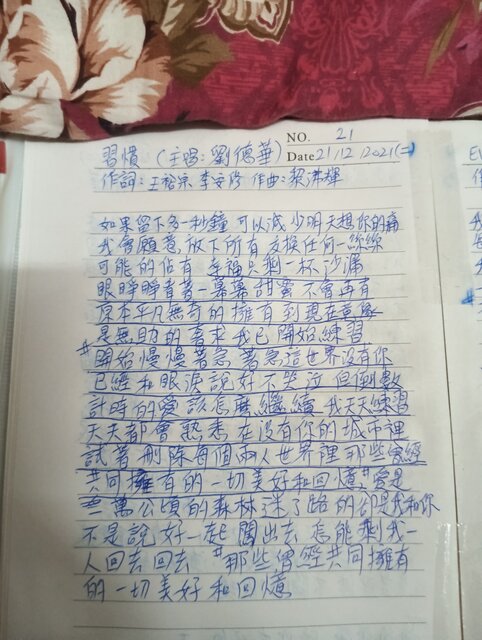 NO. 21
習慣 (主唱:劉德華) Date 21/12/2021(二)
作詞:王裕宗 李安修 作曲:黎沸輝
如果留下多一秒鐘 可以減少明天想你的痛
我會願意放下所有 交換任何一絲絲
可能的佔有 幸福只剩一杯沙漏
眼睜睜看著一幕幕甜蜜不會再有
原本平凡無奇的擁有 到現在竟像
是無助的奢求 我已開始練習
#開始慢慢著急 著急這世界沒有你
已經和眼淚說好不哭泣 但倒數
計時的愛該怎麼繼續 我天天練習
天天都會熟悉 在沒有你的城市裡
試著刪除每個兩人世界裡 那些曾經
共同擁有的一切美好和回憶# 愛是
一萬公頃的森林 迷了路的卻是我和你
不是說好一起闖出去 怎能剩我一
人回去 回去 #那些曾經共同擁有
的一切美好和回憶